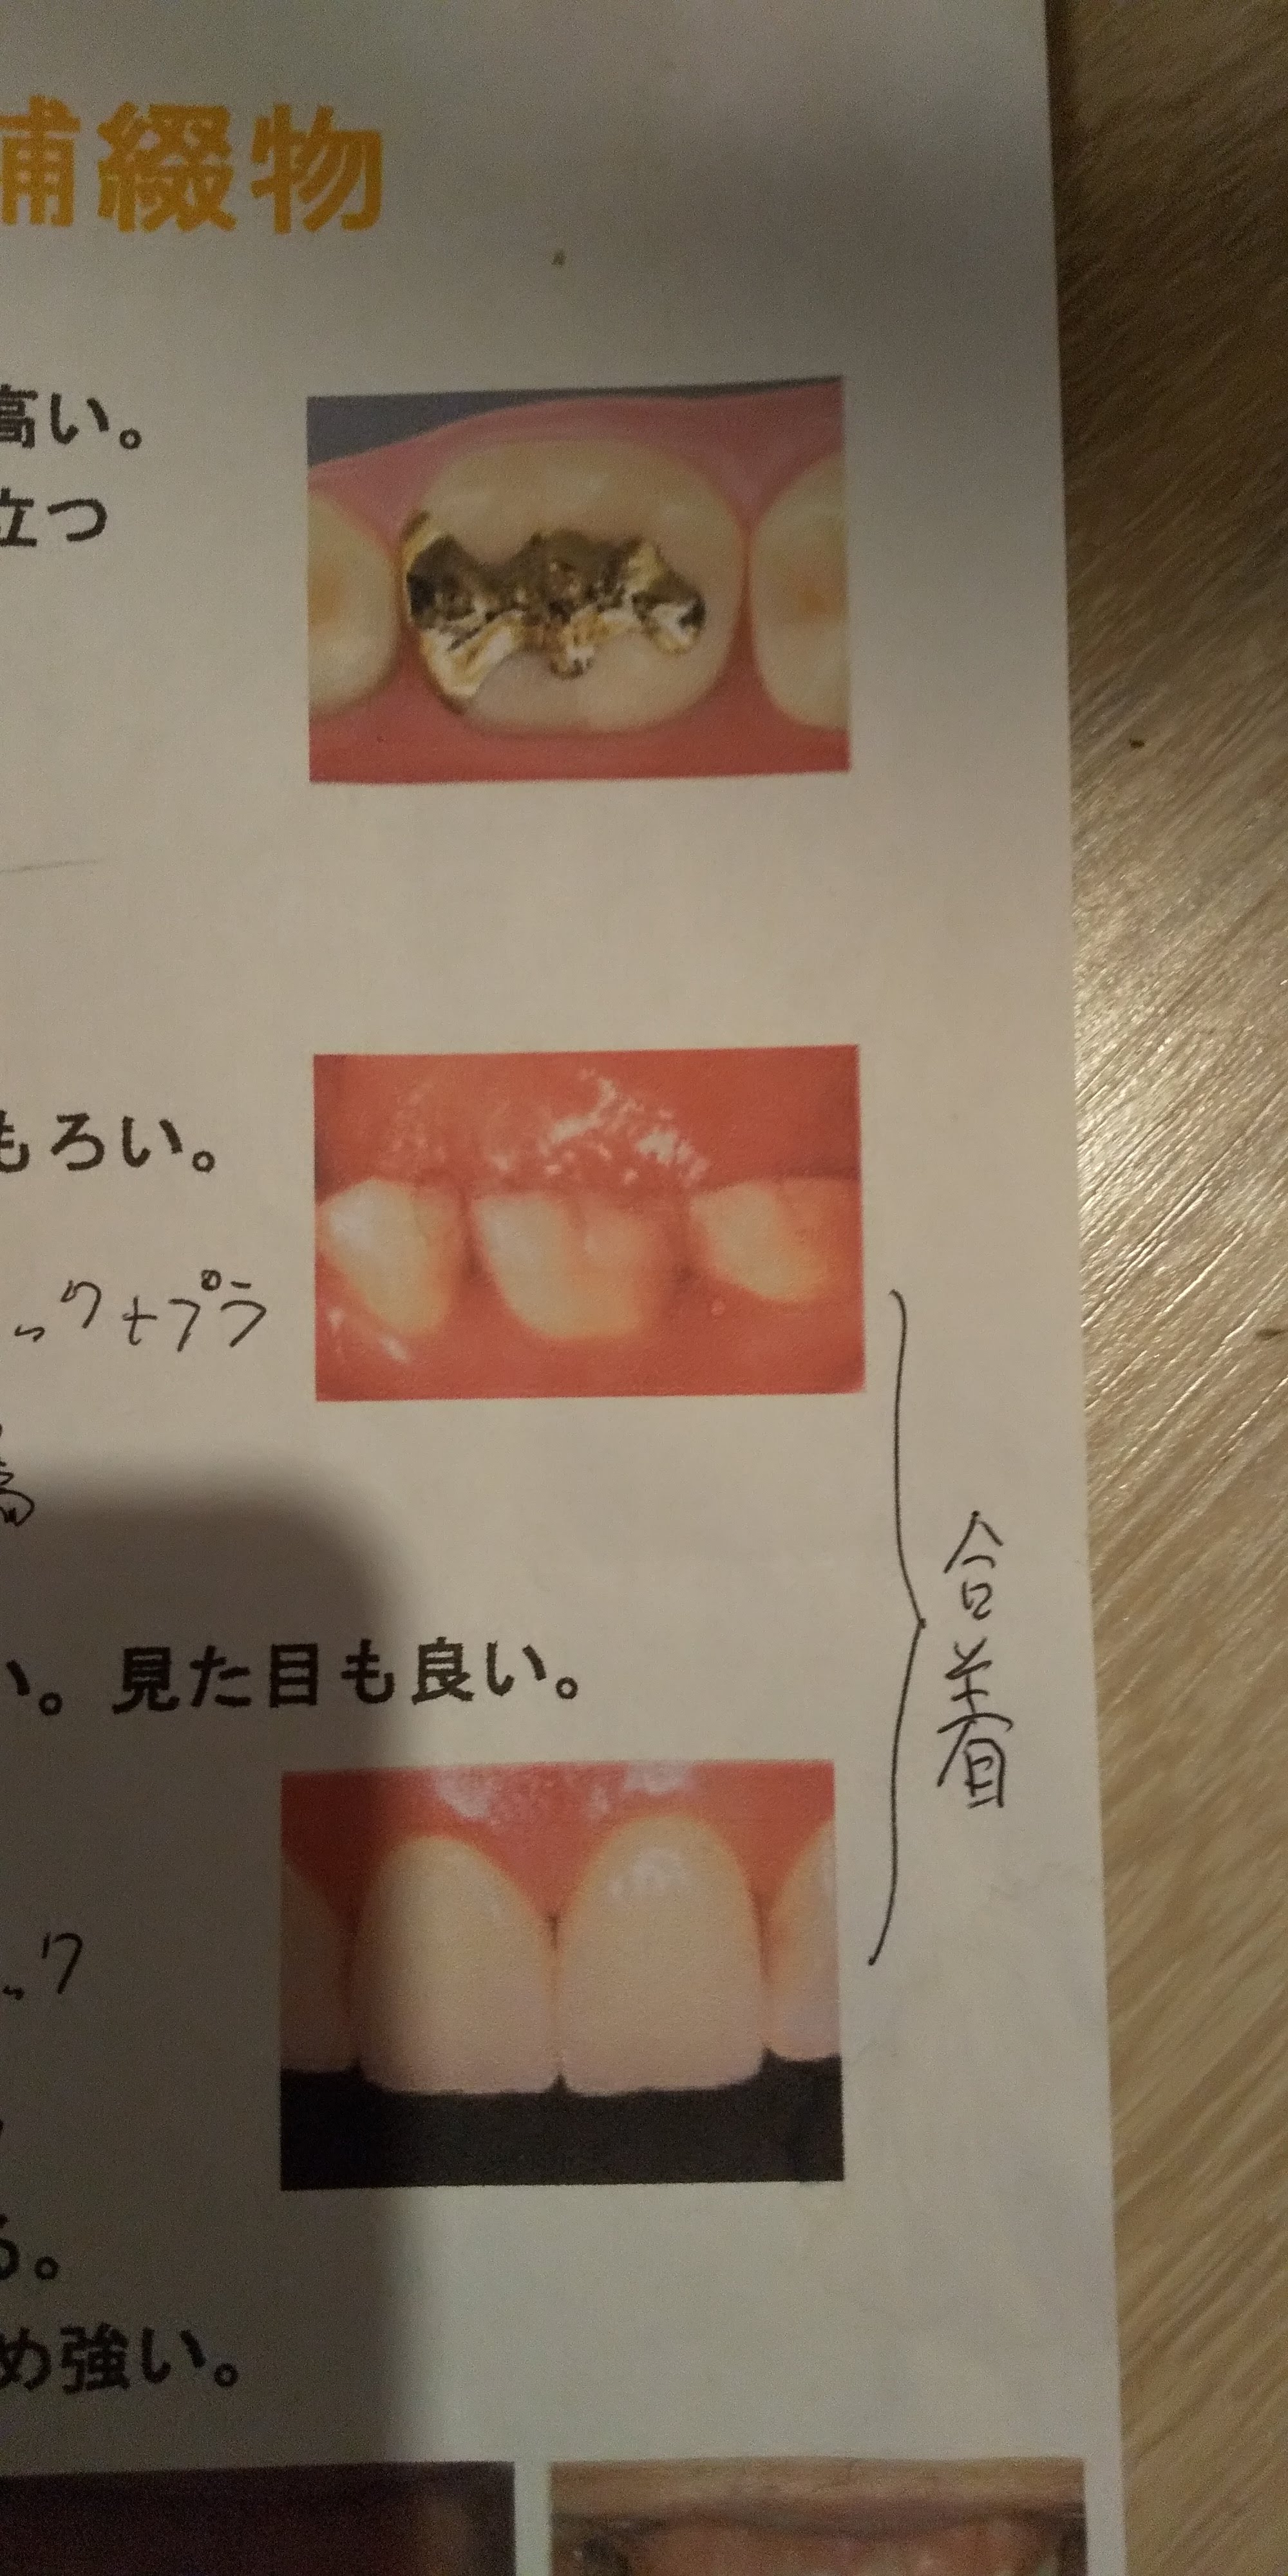 補綴物
高い。
立つ
もろい。
ック+プラ
合着
い。見た目も良い。
ック
る。
め強い。